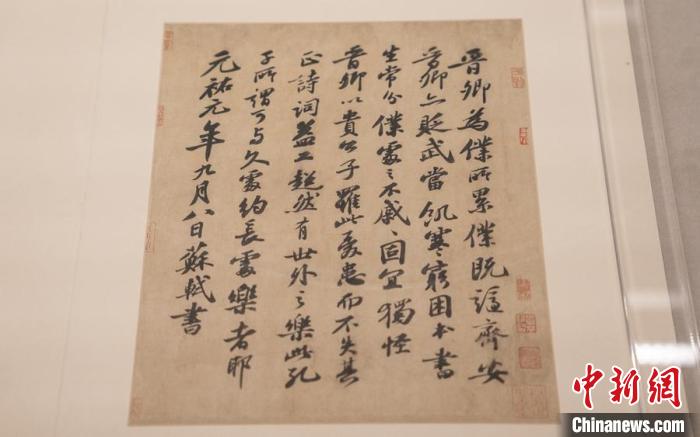 晉卿為僕所累僕既謫齊安
晉卿亦貶武當飢寒窮困本書
生常分僕處之不戚〻固宜獨怪
晉卿以貴公子罹此憂患而不失其
正詩詞益工超然有世外之樂此孔
子所謂可与久處約長處樂者耶
元祐元年九月八日蘇軾書
中新网
Chinanews.com